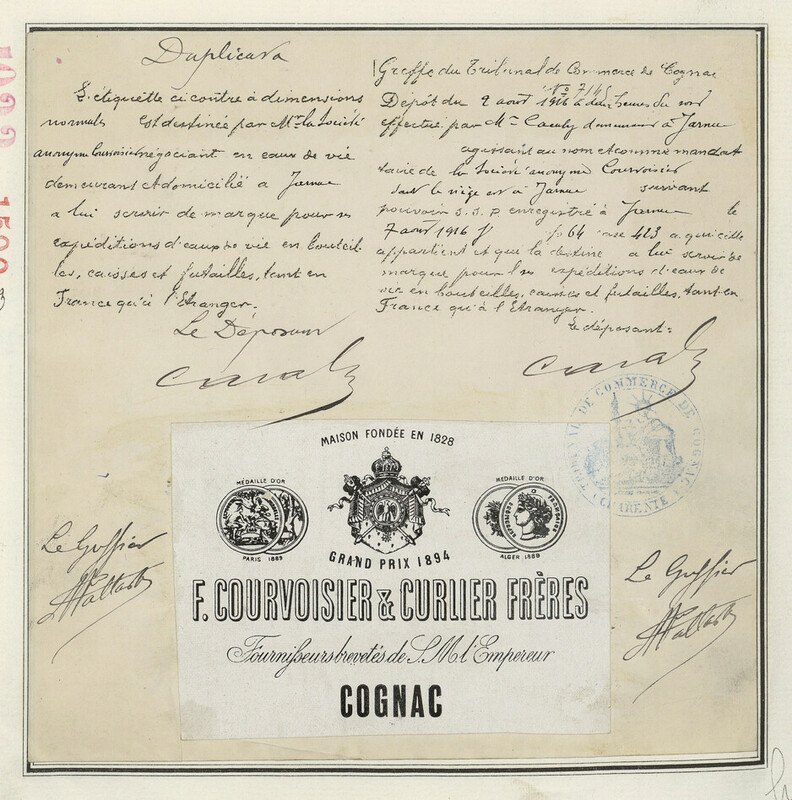 Duplicata
L'étiquette ci contre à dimensions
normales est destinée par Mr la Société
anonyme Courvoisier négociant en eaux de vie
demeurant et domicilié à Jarnac
a lui servir de marque pour ses
expéditions d'eaux de vie en bouteil-
les, caisses et futailles, tant en
France qu'à l'Etranger.
Le Déposant
Greffe du Tribunal de Commerce de Cognac
No 7145
Dépôt du 2 aout 1916 à deux heures du soir
effectué par Mr demeurant à Jarnac
agissant au nom et comme mandat
taire de la Société anonyme Courvoisier
dont le siège est à Jarnac suivant
pouvoir S.S.P. enregistré à Jarnac le
7 aout 1916 fo 64 case 413 a qui elle
appartient et que la destine a lui servir de
marque pour ses expéditions d'eaux de
vie en bouteilles, caisses et futailles, tant en
France qu'à l'Etranger.
Le déposant:
TRIBUNAL DE COMMERCE DE COGNAC
(CHARENTE)
MAISON FONDÉE EN 1828
MÉDAILLE D'OR
PARIS 1889
MEDAILLE D'OR
EXPOSITION FRANÇAISE
ALGER 1889
GRAND PRIX 1894
F. COURVOISIER & CURLIER FRÈRES
Fournisseurs brevetés de S. M. l'Empereur
COGNAC
Le Greffier
Le Greffier